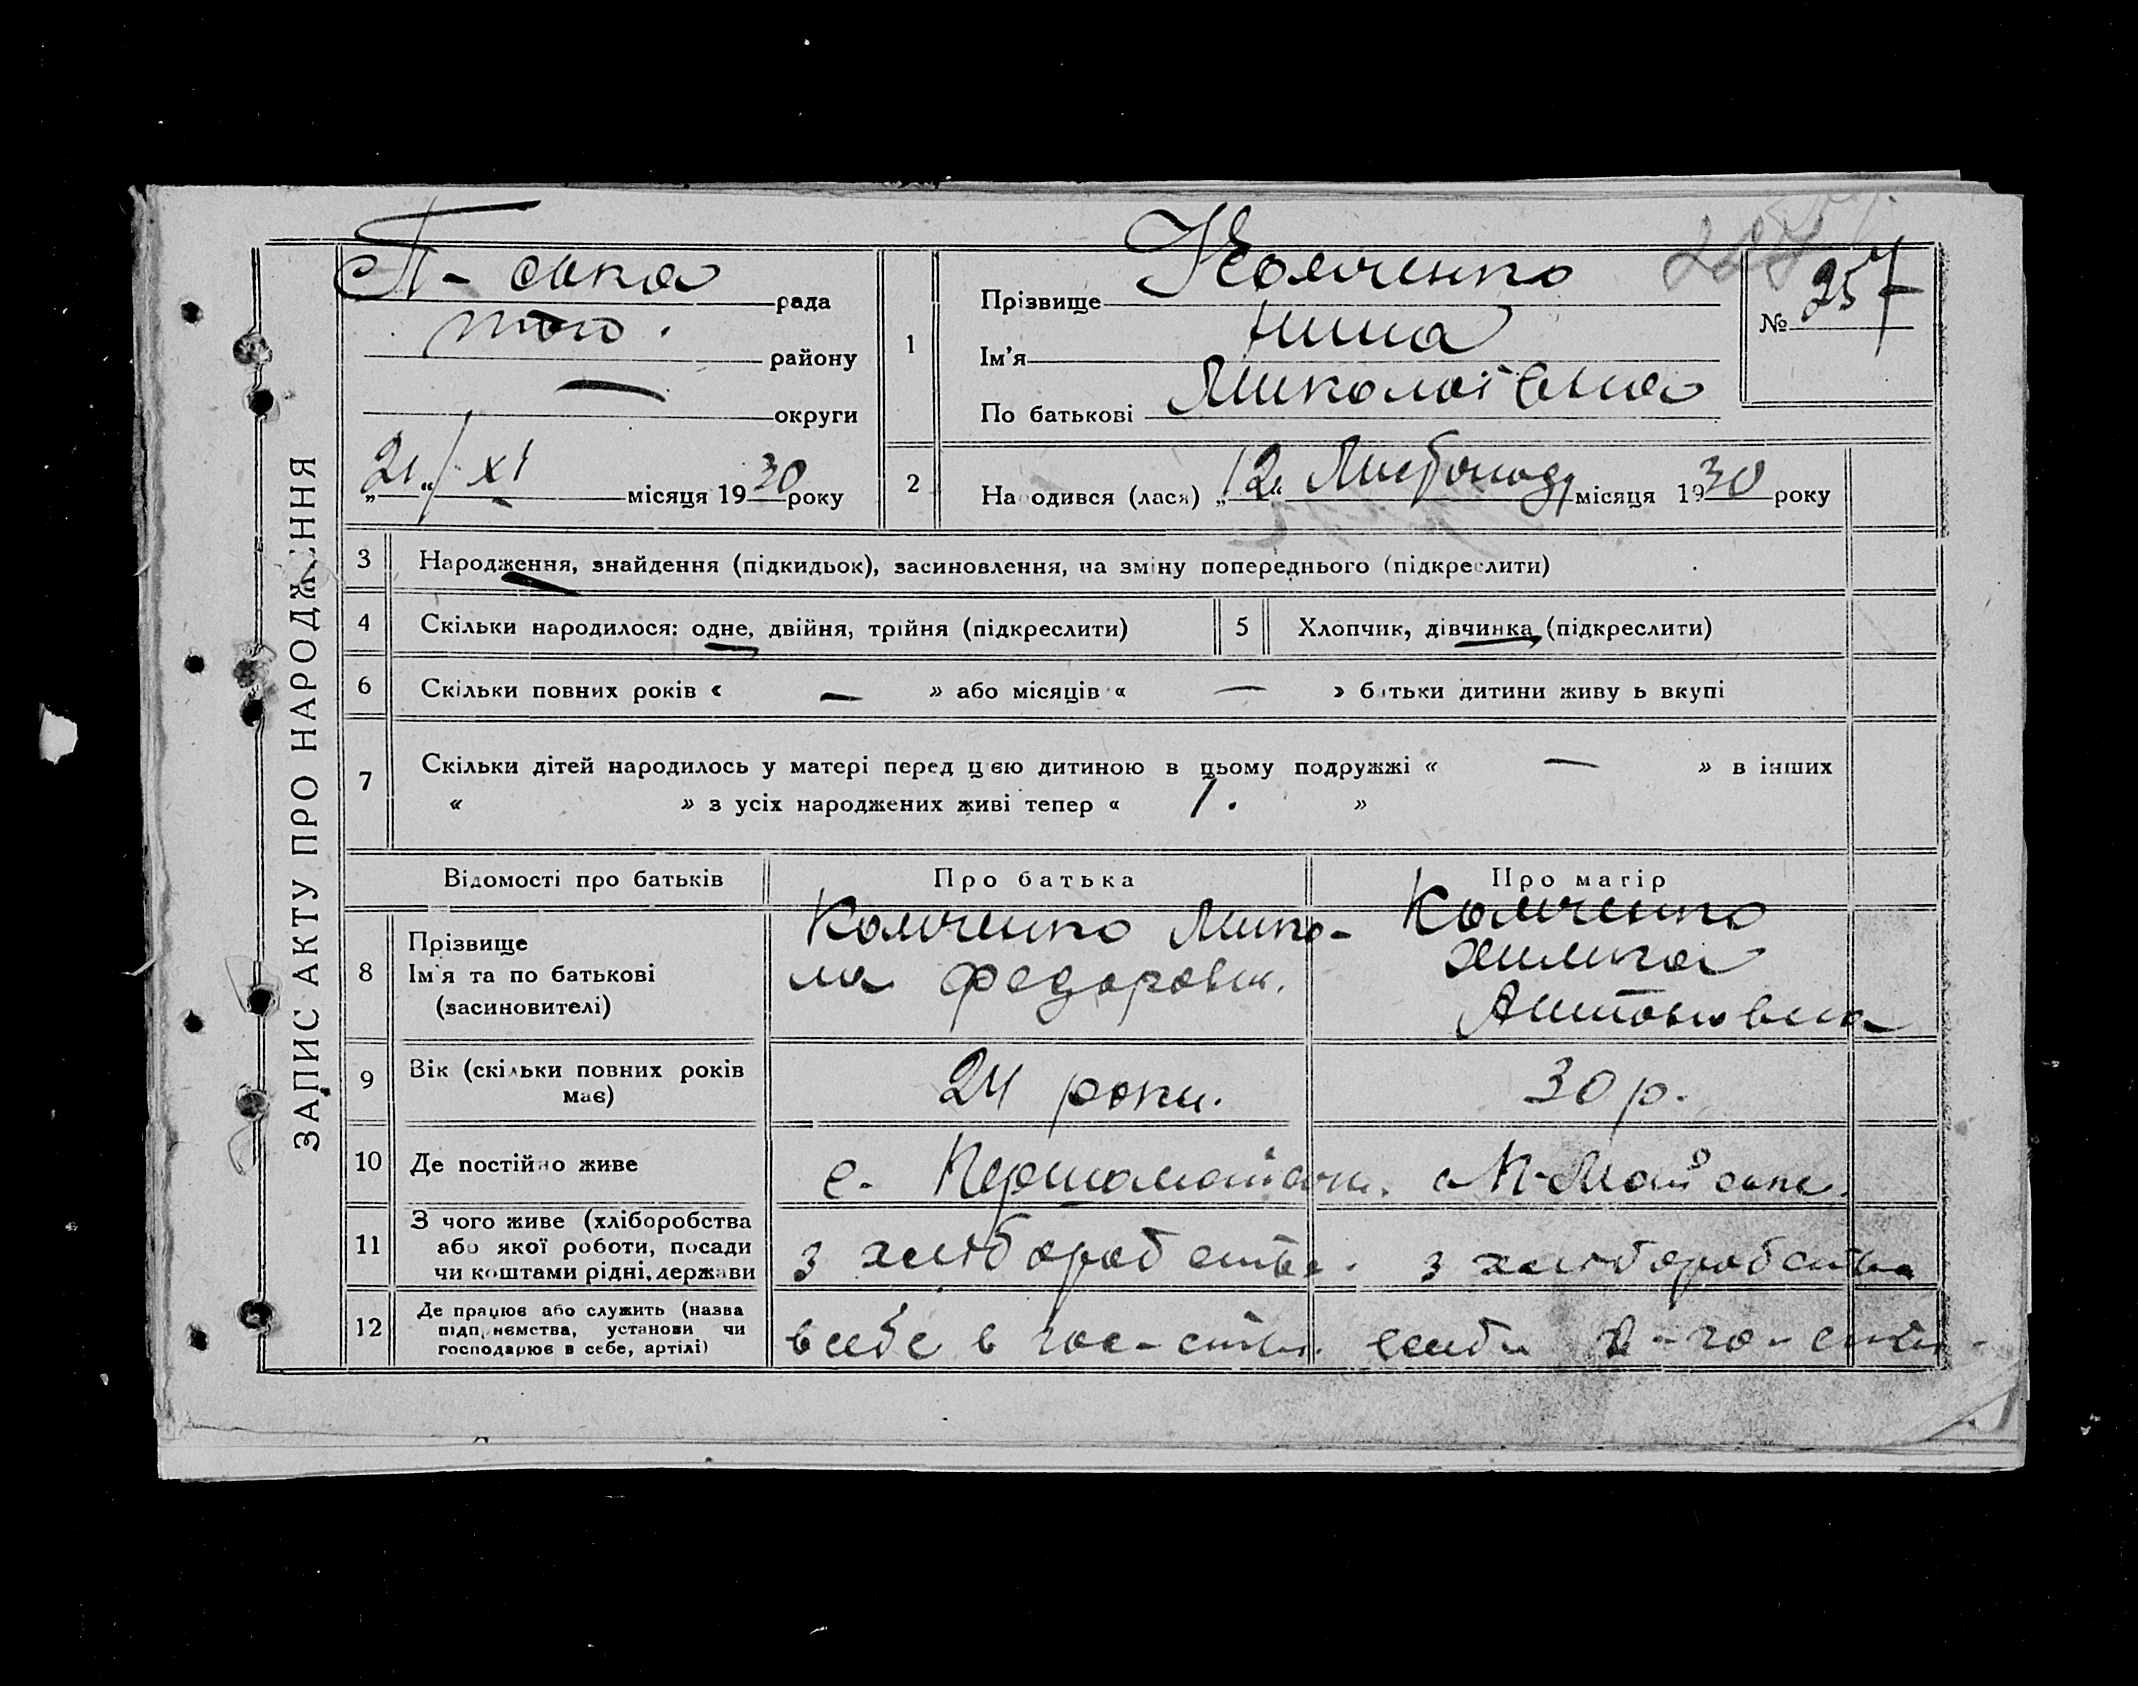 ЗАПИС АКТУ ПРО НАРОДЖЕННЯ
П-ська рада
того. району
— округи
„21“ XI місяця 1930 року
1
Прізвище Комченко
Ім'я Нина
По батькові Миколаївна
227
№ 257
2 Народився (лася) „12“ Листопада місяця 1930 року
3 Народження, знайдення (підкидьок), засиновлення, на зміну попереднього (підкреслити)
4 Скільки народилося: одне, двійня, трійня (підкреслити) 5 Хлопчик, дівчинка (підкреслити)
6 Скільки повних років « — » або місяців « — » батьки дитини живуть вкупі
7 Скільки дітей народилось у матері перед цією дитиною в цьому подружжі « — » в інших
« » з усіх народжених живі тепер « 1. »
Відомості про батьків Про батька Про матір
8 Прізвище Ім'я та по батькові (засиновителі)
Комченко Мико-
ла Федорович.
Комченко
Химка
Антоновна
9 Вік (скільки повних років має) 24 роки. 30 р.
10 Де постійно живе с. Першомайськ. с П-Майське.
11 З чого живе (хліборобства або якої роботи, посади чи коштами рідні, держави
з хліборобства. з хліборобства
12 Де працює або служить (назва підприємства, установи чи господарює в себе, артілі)
в себе в гос-стві. в го-стві